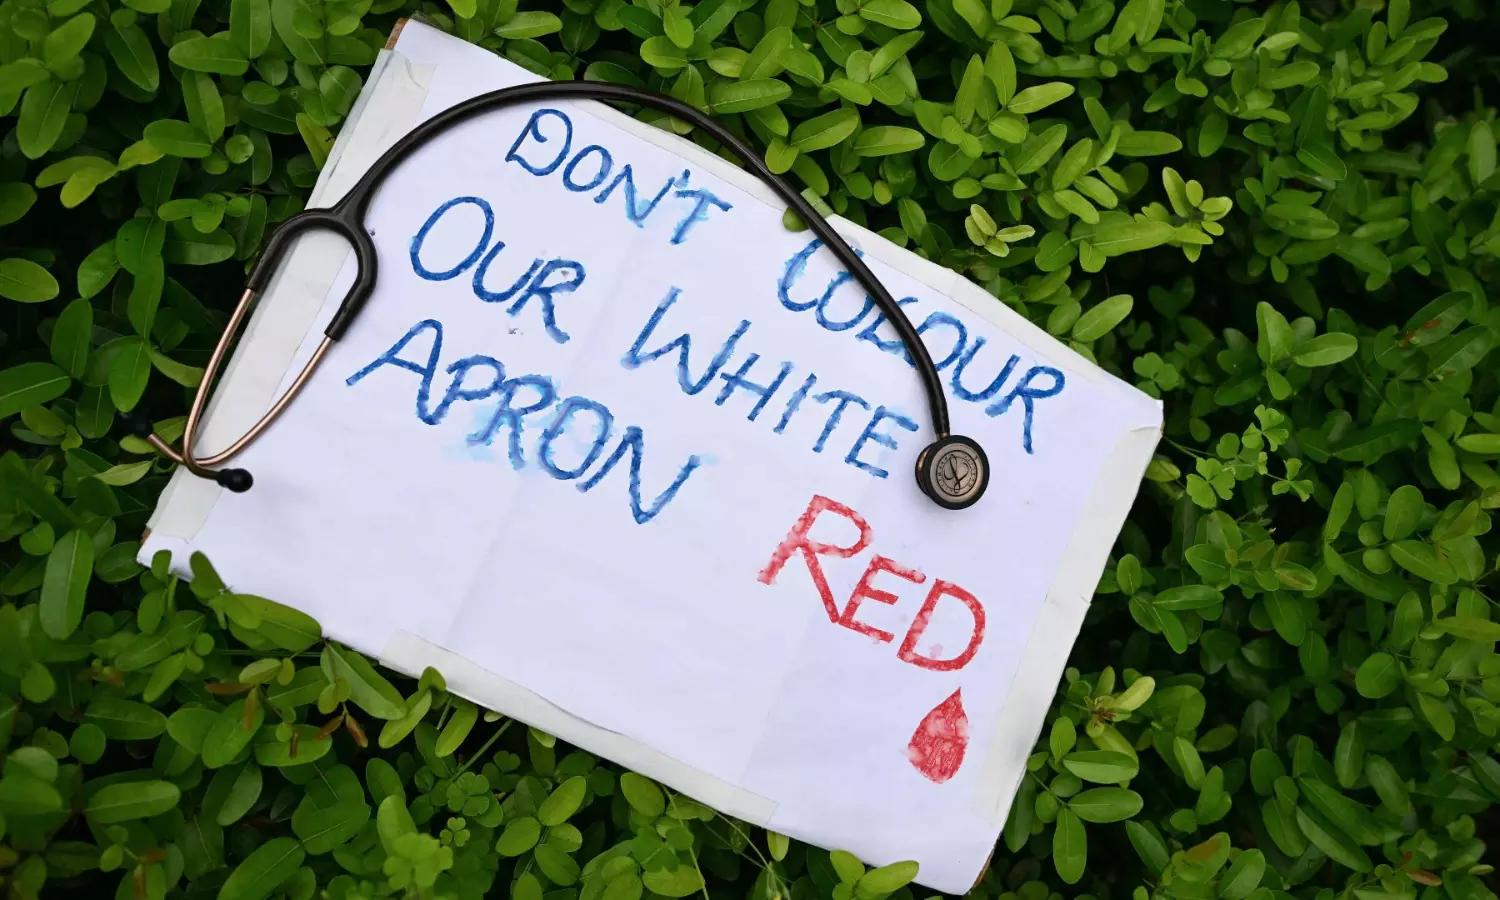 DON'T COLOUR
OUR WHITE
APRON
RED